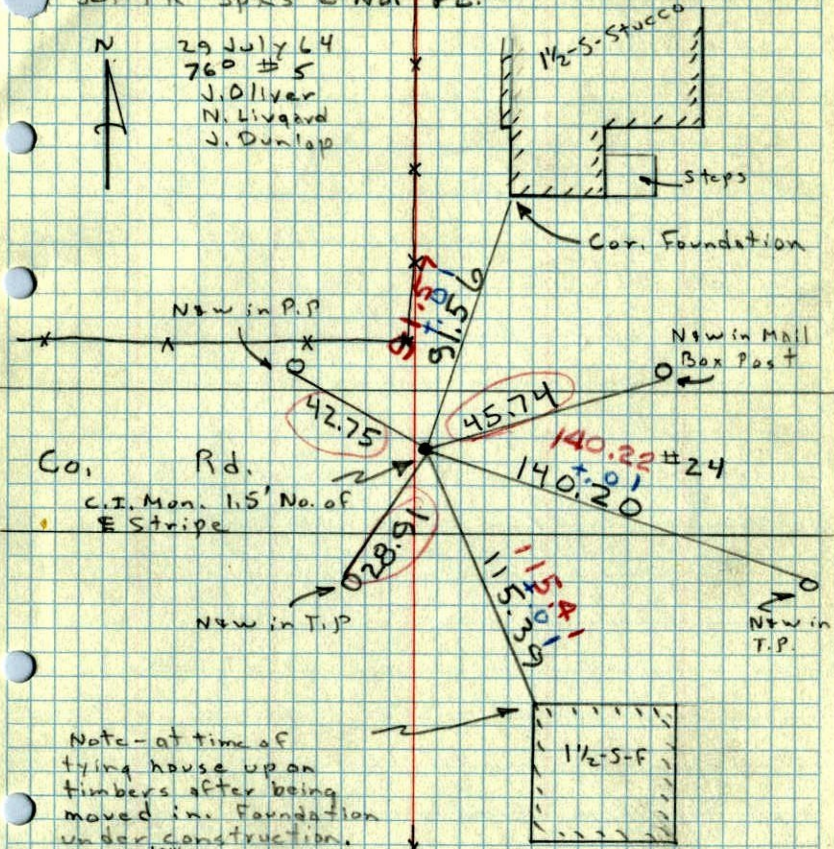 N
29 July 64
76° # 5
J. Oliver
N. Livgard
J. Dunlop
1½-S-Stucco
Steps
Cor. Foundation
N&W in P.P
91.56
+.01
N&W in Mail
Box Post
42.75
45.74
140.22 #24
+.01
140.20
Co. Rd.
C.I. Mon. 1.5' No. of
E Stripe
28.91
115.41
+.01
115.39
N&W in T.P
N&W in
T.P.
1½-S-F
Note - at time of
tying house up on
timbers after being
moved in. Foundation
under construction.